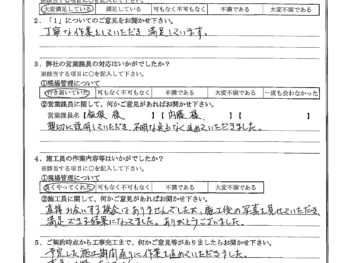 大変満足している 満足している 可もなく不可もなく 不満である 大変不満である
2．「1」についてのご意見をお聞かせ下さい。
丁寧な作業をしていただき、満足しています。
3．弊社の営業課員の対応はいかがでしたか？
※該当する項目に○を記入して下さい。
①現場管理について
行き届いていた 可もなく不可もなく 不満である 大変不満である 一度も会わなかった
②営業課員に関して、何かご意見があればお聞かせ下さい。
営業課員名【飯塚 様 】【内藤 様 】【 】
親切に説明していただき、不明な点もなく進めていただきました。
4．施工員の作業内容等はいかがでしたか？
※該当する項目に○を記入して下さい。
①現場管理について
良くやってくれた 可もなく不可もなく 不満である 大変不満である
②施工員に関して、何かご意見があればお聞かせ下さい。
直接お会いする機会はありませんでしたが、施工後の写真も見せていただき、
満足できる結果になってました。ありがとうございました。
5．ご契約時点から工事完工まで、何かご意見等がありましたらお聞かせ下さい。
予定した施工期間通りに作業を進めていただきました。